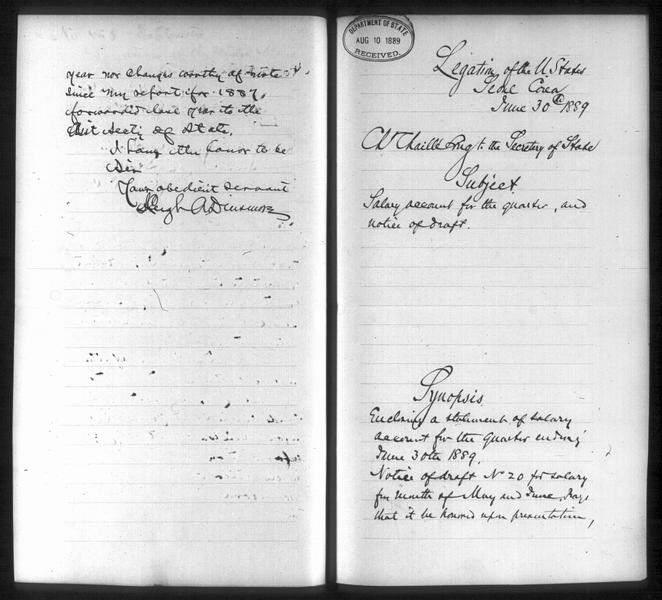 year nor changes worthy of note
since my report for 1887,
forwarded last year to the
Asst Secty of State.
I have the honor to be
Sir
Your obedient servant
Hugh A Dinsmore
DEPARTMENT OF STATE
AUG 10 1889
RECEIVED.
Legation of the U States
Seoul Corea
June 30th 1889
Chaillé Long to the Secretary of State
Subject
Salary account for the quarter, and
notice of draft.
Synopsis
Enclosing a statement of salary
account for the quarter ending
June 30th 1889.
Notice of draft No 20 for salary
for month of May and June, Prays
that it be honored upon presentation,